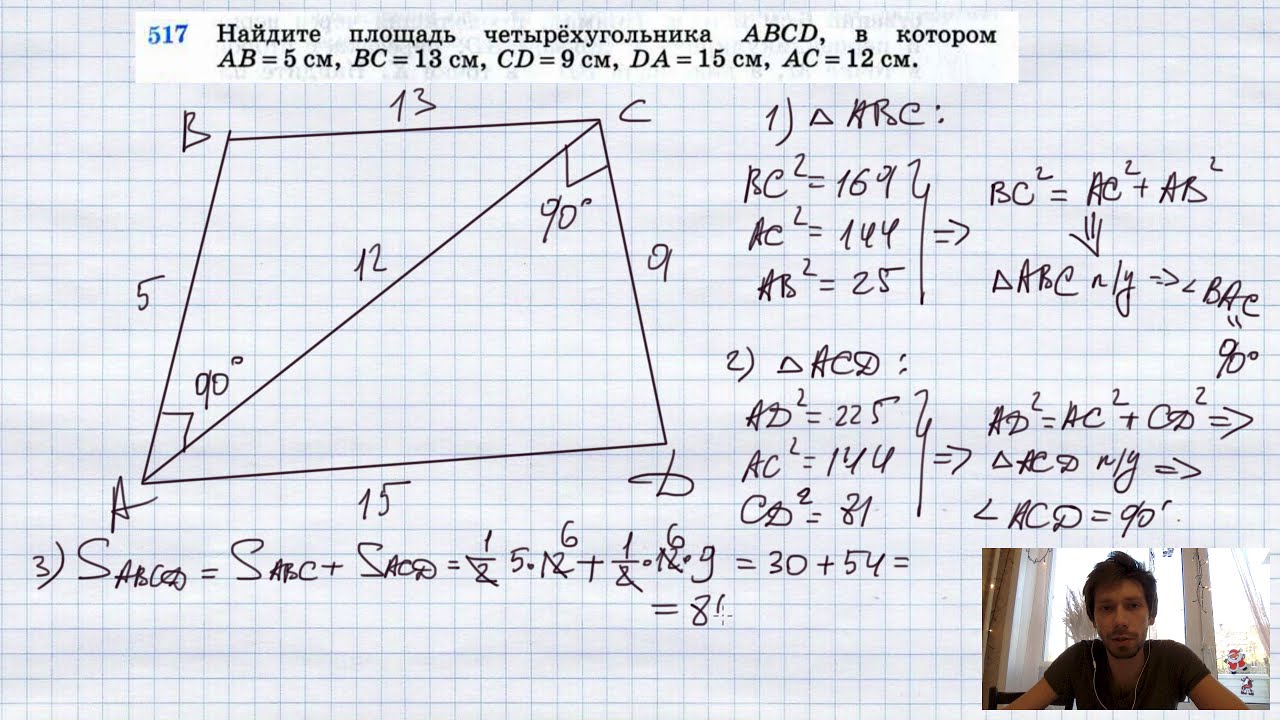 517 Найдите площадь четырёхугольника ABCD, в котором
AB = 5 см, BC = 13 см, CD = 9 см, DA = 15 см, AC = 12 см.
B
13
C
5
12
90°
9
90°
A
15
D
1) △ ABC :
BC² = 169
AC² = 144
AB² = 25
=> BC² = AC² + AB²
⇓
△ABC п/у => ∠BAC
=
90°
2) △ACD :
AD² = 225
AC² = 144
CD² = 81
=> AD² = AC² + CD² =>
△ACD п/у =>
∠ACD = 90°.
3) S ABCD = S ABC + S ACD = 1/2 5·12 6 + 1/2 · 12 6 · 9 = 30 + 54 =
= 84